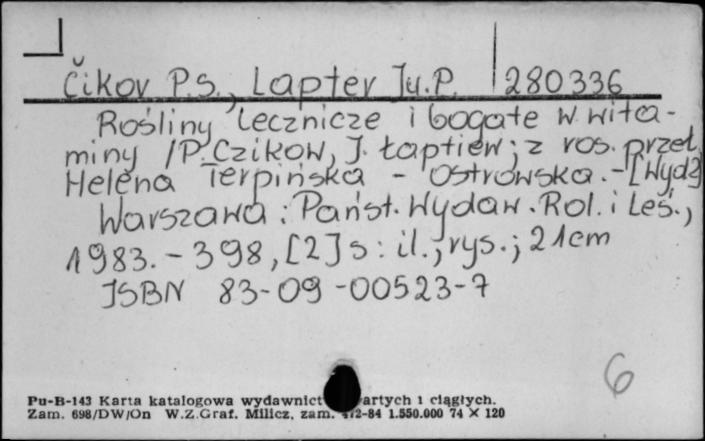 Čikov P.S., Lapter Ju.P. 280336
Rośliny lecznicze i bogate w wita-
miny /P. Czikow, J. Łaptiew ; z ros. przeł.
Helena Terpińska - Ostrowska. - [Wyd2]
Warszawa : Państ. Wydaw. Rol. i Leś.,
1983. - 398, [2] s : il., rys. ; 21cm
ISBN 83-09-00523-7
6
Pu-B-143 Karta katalogowa wydawnict artych i ciągłych.
Zam. 698/DW/On W.Z.Graf. Milicz, zam. 2-84 1.550.000 74 × 120